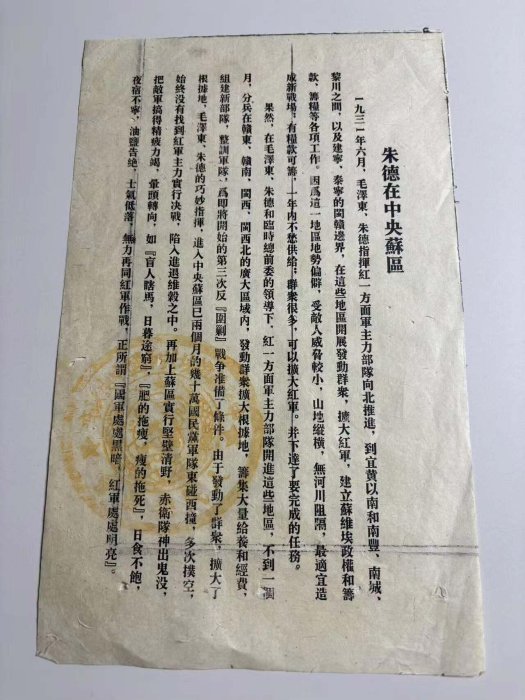 朱德在中央蘇區
一九三一年六月，毛澤東、朱德指揮紅一方面軍主力部隊向北推進，到宜黄以南和南豐、南城、
黎川之間，以及建寧、泰寧的閩贛邊界，在這些地區開展發動群衆，擴大紅軍，建立蘇維埃政權和籌
款、籌糧等各項工作。因爲這一地區地勢偏僻，受敵人威脅較小，山地縱橫，無河川阻隔，最適宜造
成新戰場，有糧款可籌，一年内不愁供給；群衆很多，可以擴大紅軍。并下達了要完成的任務。
果然，在毛澤東、朱德和臨時總前委的領導下，紅一方面軍主力部隊開進這些地區，不到一個
月，分兵在贛東、贛南、閩西、閩西北的廣大區域内，發動群衆擴大根據地，籌集大量給養和經費，
組建新部隊，整訓軍隊，爲即將開始的第三次反『圍剿』戰争准備了條件。由于發動了群衆，擴大了
根據地，毛澤東、朱德的巧妙指揮，進入中央蘇區已兩個月的幾十萬國民黨軍隊東碰西撞，多次撲空，
始終没有找到紅軍主力實行决戰，陷入進退維谷之中。再加上蘇區實行堅壁清野，赤衛隊神出鬼没，
把敵軍搞得精疲力竭，暈頭轉向，如『盲人瞎馬，日暮途窮』，『肥的拖瘦，瘦的拖死』，日食不飽，
夜宿不寧，油鹽告絶，士氣低落，無力再同紅軍作戰，正所謂『國軍處處黑暗，紅軍處處明亮』。